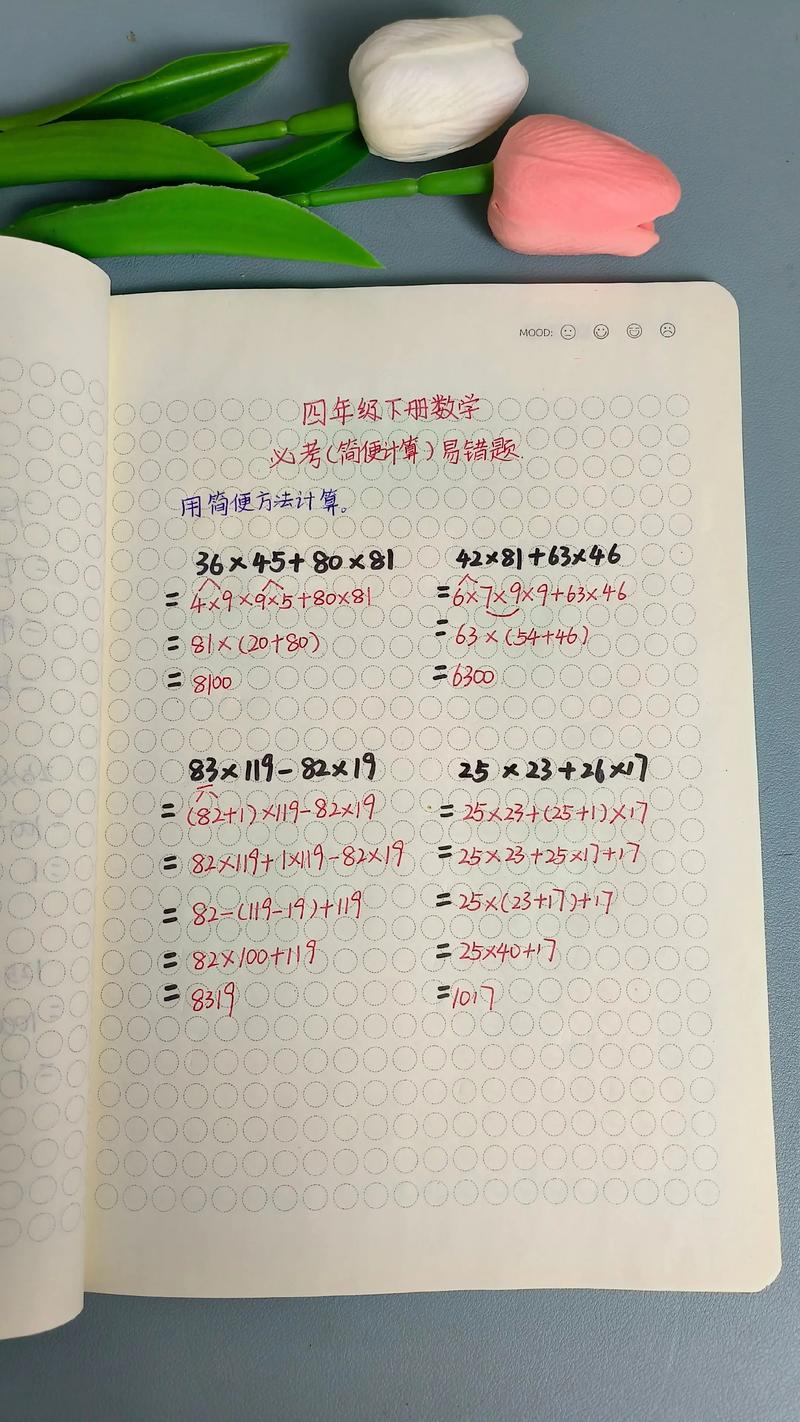 MOOD:
四年级下册数学
必考(简便计算)易错题.
用简便方法计算。
36×45+80×81
=4×9×9×5+80×81
=81×(20+80)
=8100
42×81+63×46
=6×7×9×9+63×46
=63×(54+46)
=6300
83×119-82×19
=(82+1)×119-82×19
=82×119+1×119-82×19
=82-(119-19)+119
=82×100+119
=8319
25×23+26×17
=25×23+(25+1)×17
=25×23+25×17+17
=25×(23+17)+17
=25×40+17
=1017